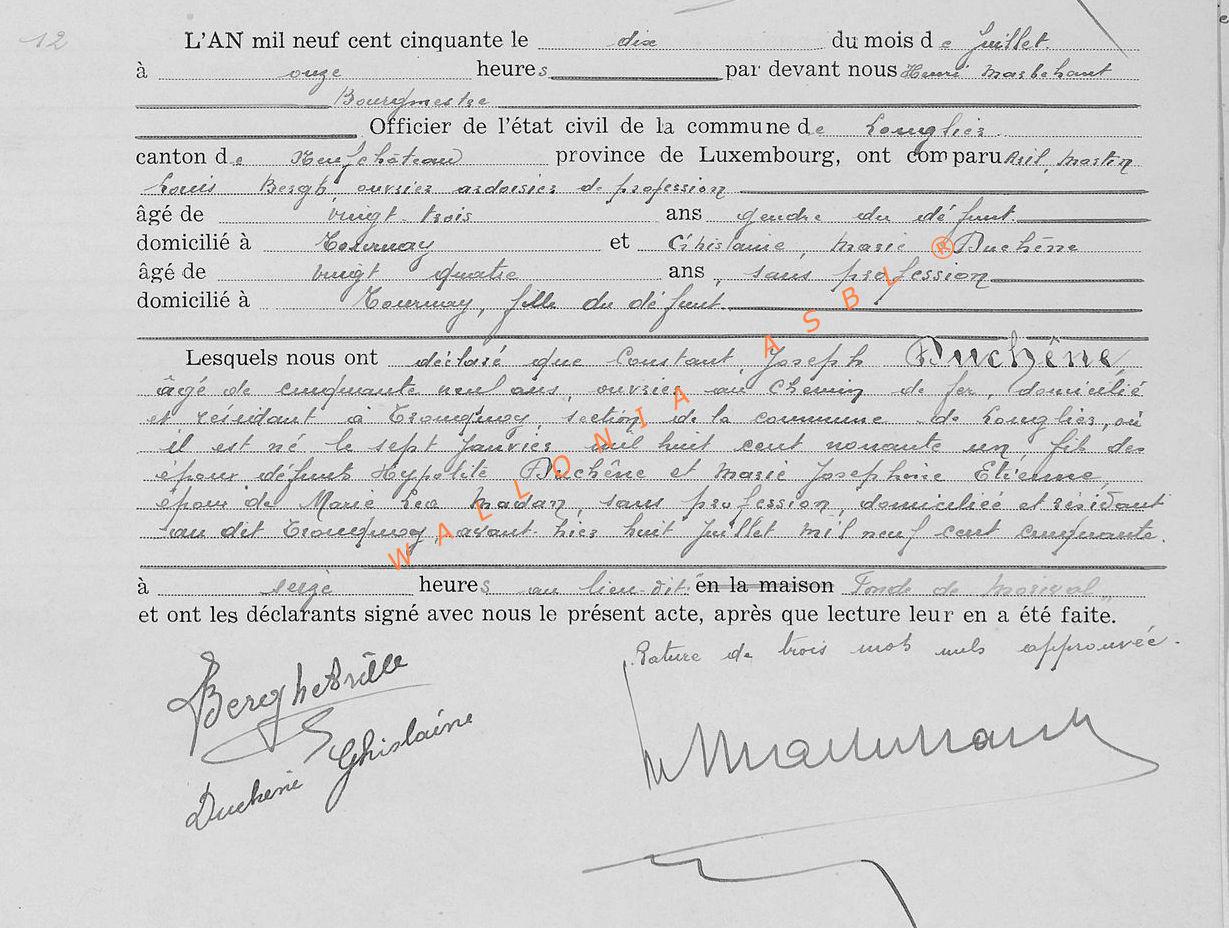 12
L'AN mil neuf cent cinquante le dix du mois de Juillet
à onze heures par devant nous Henri
Bourgmestre
Officier de l'état civil de la commune de Longlier
canton de Neufchâteau province de Luxembourg, ont comparu Martin
Louis Bergh, ouvrier ardoisier de profession
âgé de vingt-trois ans gendre du défunt
domicilié à Tournay et Ghislaine, Marie Duchêne
âgé de vingt quatre ans, sans profession
domicilié à Tournay, fille du défunt.
Lesquels nous ont déclaré que Constant, Joseph Duchêne,
âgé de cinquante neuf ans, ouvrier au chemin de fer, domicilié
et résidant à Tronquoy, section de la commune de Longlier, où
il est né le sept Janvier mil huit cent nonante un, fils des
époux défunts Hypolite Duchêne et Marie Josephine Etienne,
époux de Marie Lea, sans profession, domiciliée et résidant
au dit Tronquoy, avant-hier huit Juillet mil neuf cent cinquante.
à seize heures au lieu-dit: en la maison "Fonds de
et ont les déclarants signé avec nous le présent acte, après que lecture leur en a été faite.
Rature de trois mots nuls approuvée.
Duchêne Ghislaine
WALLONIA ASBL ®